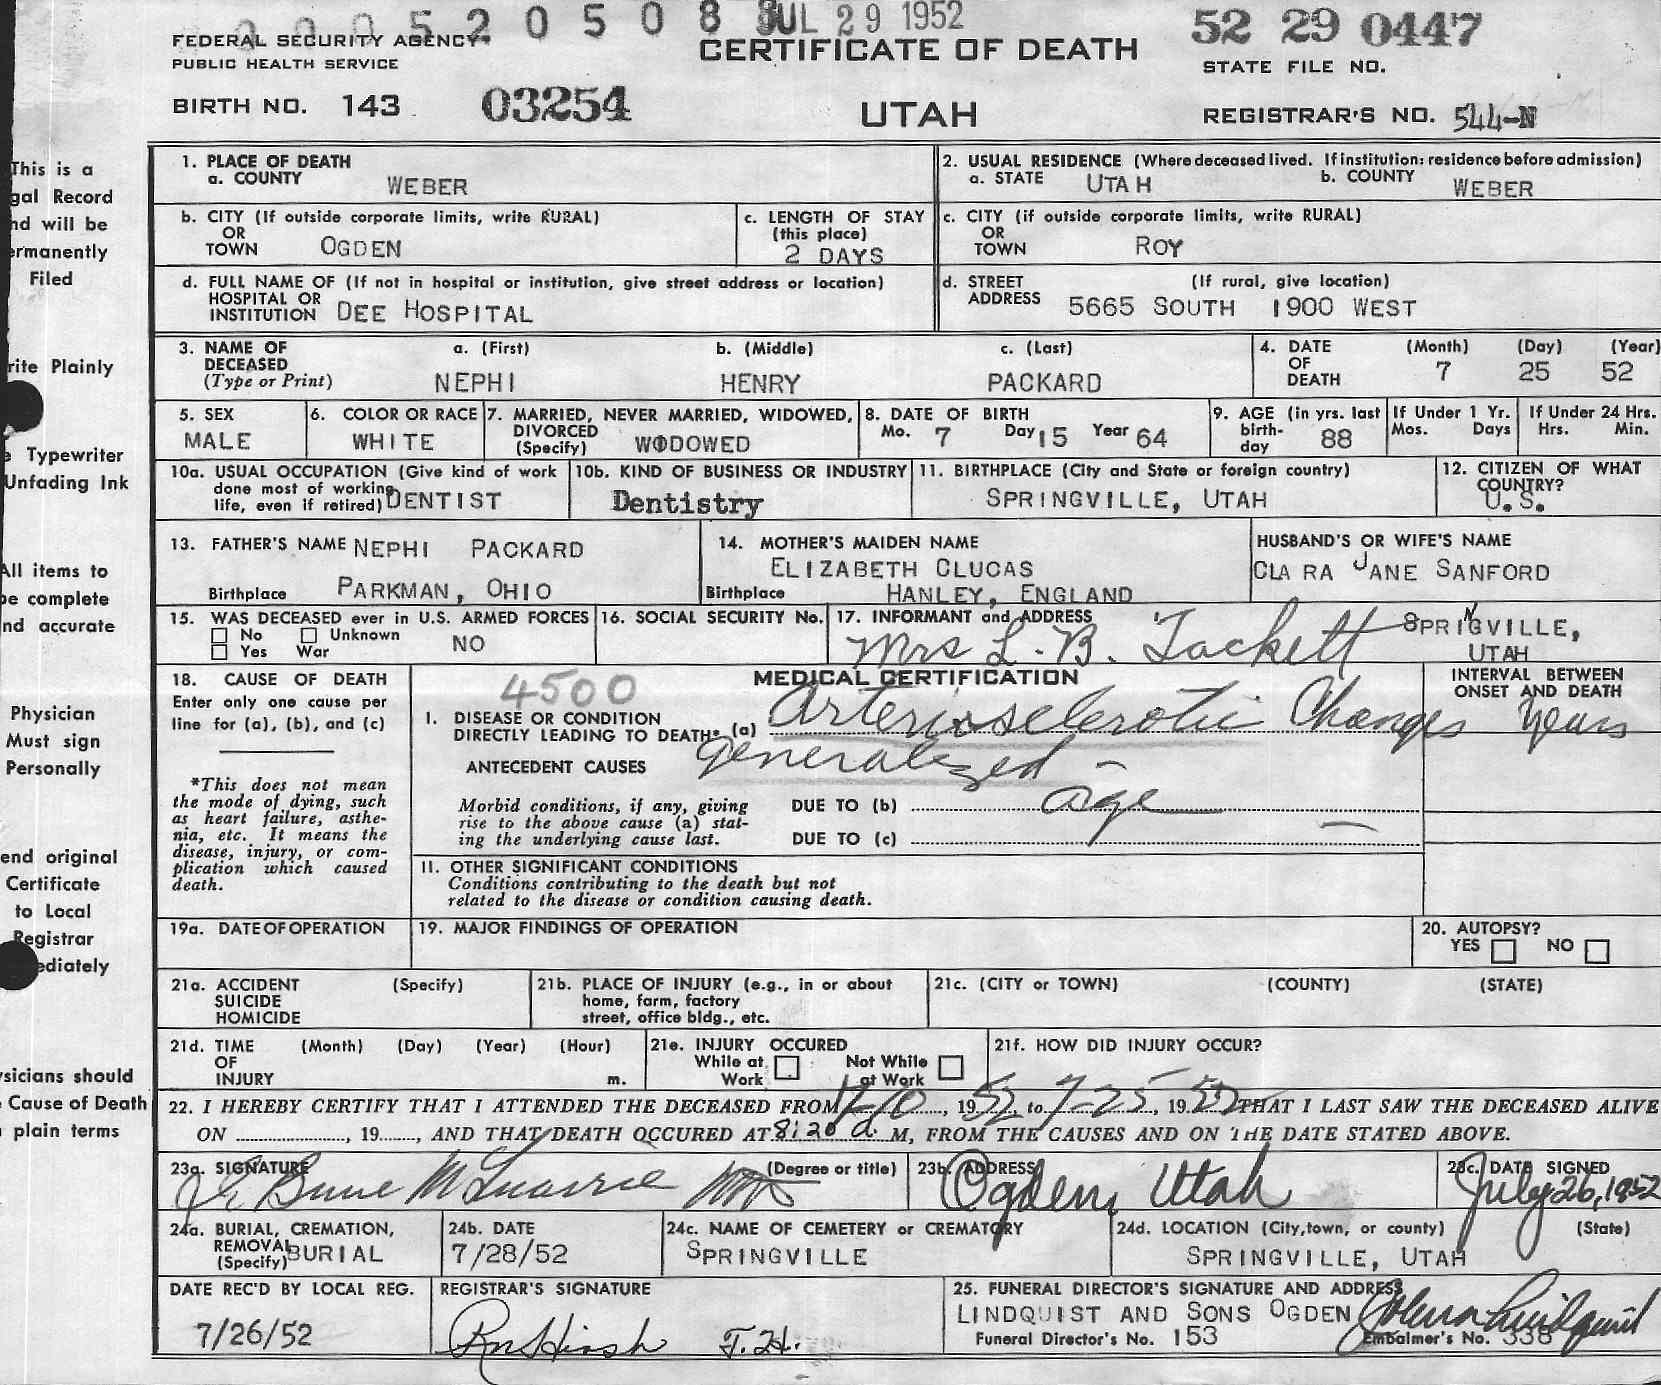 0 0 5 2 0 5 0 8 JUL 29 1952
52 29 0447
FEDERAL SECURITY AGENCY
PUBLIC HEALTH SERVICE
CERTIFICATE OF DEATH
STATE FILE NO.
BIRTH NO. 143 03254
UTAH
REGISTRAR'S NO. 544-N
This is a
gal Record
nd will be
ermanently
Filed
rite Plainly
e Typewriter
Unfading Ink
All items to
be complete
nd accurate
Physician
Must sign
Personally
end original
Certificate
to Local
Registrar
ediately
ysicians should
Cause of Death
plain terms
1. PLACE OF DEATH
a. COUNTY WEBER
2. USUAL RESIDENCE (Where deceased lived. If institution: residence before admission)
a. STATE UTAH b. COUNTY WEBER
b. CITY (If outside corporate limits, write RURAL)
OR
TOWN OGDEN
c. LENGTH OF STAY
(this place)
2 DAYS
c. CITY (if outside corporate limits, write RURAL)
OR
TOWN ROY
d. FULL NAME OF (If not in hospital or institution, give street address or location)
HOSPITAL OR
INSTITUTION DEE HOSPITAL
d. STREET (If rural, give location)
ADDRESS 5665 SOUTH 1900 WEST
3. NAME OF DECEASED
(Type or Print)
a. (First) b. (Middle) c. (Last)
NEPHI HENRY PACKARD
4. DATE OF DEATH
(Month) (Day) (Year)
7 25 52
5. SEX
MALE
6. COLOR OR RACE
WHITE
7. MARRIED, NEVER MARRIED, WIDOWED,
DIVORCED
(Specify) WIDOWED
8. DATE OF BIRTH
Mo. 7 Day 15 Year 64
9. AGE (in yrs. last
birth-
day 88
If Under 1 Yr.
Mos. Days
If Under 24 Hrs.
Hrs. Min.
10a. USUAL OCCUPATION (Give kind of work
done most of working
life, even if retired) DENTIST
10b. KIND OF BUSINESS OR INDUSTRY
Dentistry
11. BIRTHPLACE (City and State or foreign country)
SPRINGVILLE, UTAH
12. CITIZEN OF WHAT
COUNTRY?
U.S.
13. FATHER'S NAME NEPHI PACKARD
Birthplace PARKMAN, OHIO
14. MOTHER'S MAIDEN NAME
ELIZABETH CLUCAS
Birthplace HANLEY, ENGLAND
HUSBAND'S OR WIFE'S NAME
CLARA JANE SANFORD
15. WAS DECEASED ever in U.S. ARMED FORCES
No Unknown
Yes War
NO
16. SOCIAL SECURITY No.
17. INFORMANT and ADDRESS
Mrs L. B. Tackett SPRINGVILLE,
UTAH
18. CAUSE OF DEATH
Enter only one cause per
line for (a), (b), and (c)
*This does not mean
the mode of dying, such
as heart failure, asthe-
nia, etc. It means the
disease, injury, or com-
plication which caused
death.
4500 MEDICAL CERTIFICATION
INTERVAL BETWEEN
ONSET AND DEATH
I. DISEASE OR CONDITION
DIRECTLY LEADING TO DEATH* (a) Arteriosclerotic Changes Years
generalized -
ANTECEDENT CAUSES
Morbid conditions, if any, giving
rise to the above cause (a) stat-
ing the underlying cause last.
DUE TO (b) age
DUE TO (c)
II. OTHER SIGNIFICANT CONDITIONS
Conditions contributing to the death but not
related to the disease or condition causing death.
19a. DATE OF OPERATION
19. MAJOR FINDINGS OF OPERATION
20. AUTOPSY?
YES NO
21a. ACCIDENT (Specify)
SUICIDE
HOMICIDE
21b. PLACE OF INJURY (e.g., in or about
home, farm, factory
street, office bldg., etc.
21c. (CITY or TOWN) (COUNTY) (STATE)
21d. TIME (Month) (Day) (Year) (Hour)
OF
INJURY m.
21e. INJURY OCCURED
While at Work
Not While at Work
21f. HOW DID INJURY OCCUR?
22. I HEREBY CERTIFY THAT I ATTENDED THE DECEASED FROM , 1952, to 7-25, 1952 THAT I LAST SAW THE DECEASED ALIVE
ON , 19 , AND THAT DEATH OCCURED AT 8:20 a. M, FROM THE CAUSES AND ON THE DATE STATED ABOVE.
23a. SIGNATURE (Degree or title)
23b. ADDRESS
Ogden, Utah
23c. DATE SIGNED
July 26, 1952
24a. BURIAL, CREMATION,
REMOVAL
(Specify) BURIAL
24b. DATE
7/28/52
24c. NAME OF CEMETERY or CREMATORY
SPRINGVILLE
24d. LOCATION (City, town, or county) (State)
SPRINGVILLE, UTAH
DATE REC'D BY LOCAL REG.
7/26/52
REGISTRAR'S SIGNATURE
25. FUNERAL DIRECTOR'S SIGNATURE AND ADDRESS
LINDQUIST AND SONS OGDEN
Funeral Director's No. 153
Embalmer's No. 338